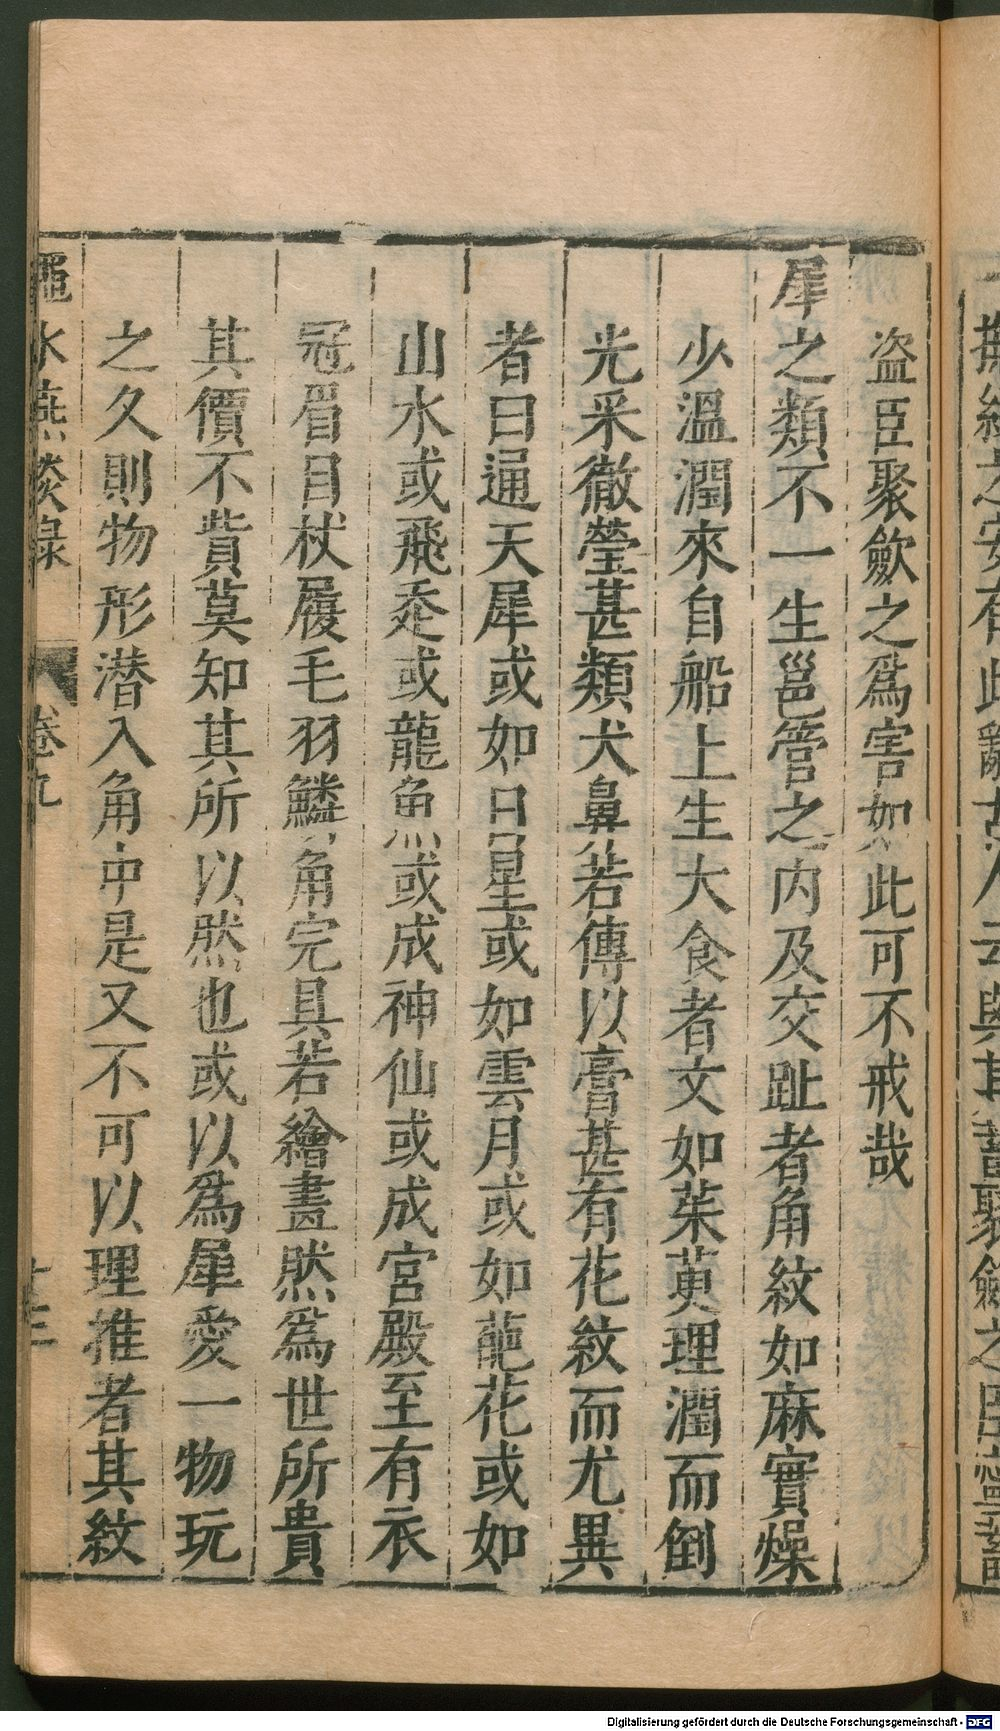 盗臣聚歛之爲害如此可不戒哉
犀之類不一生邕管之内及交趾者角紋如麻實燥
少溫潤來自舶上生大食者文如茱萸理潤而倒
光采徹瑩甚類犬鼻若傳以膏甚有花紋而尤異
者曰通天犀或如日星或如雲月或如葩花或如
山水或飛走或龍魚或成神仙或成宮殿至有衣
冠眉目杖履毛羽鱗角完具若繪畫然爲世所貴
其價不貲莫知其所以然也或以爲犀愛一物玩
之久則物形潜入角中是又不可以理推者其紋
澠水燕談録 卷九 十三
Digitalisierung gefördert durch die Deutsche Forschungsgemeinschaft - DFG